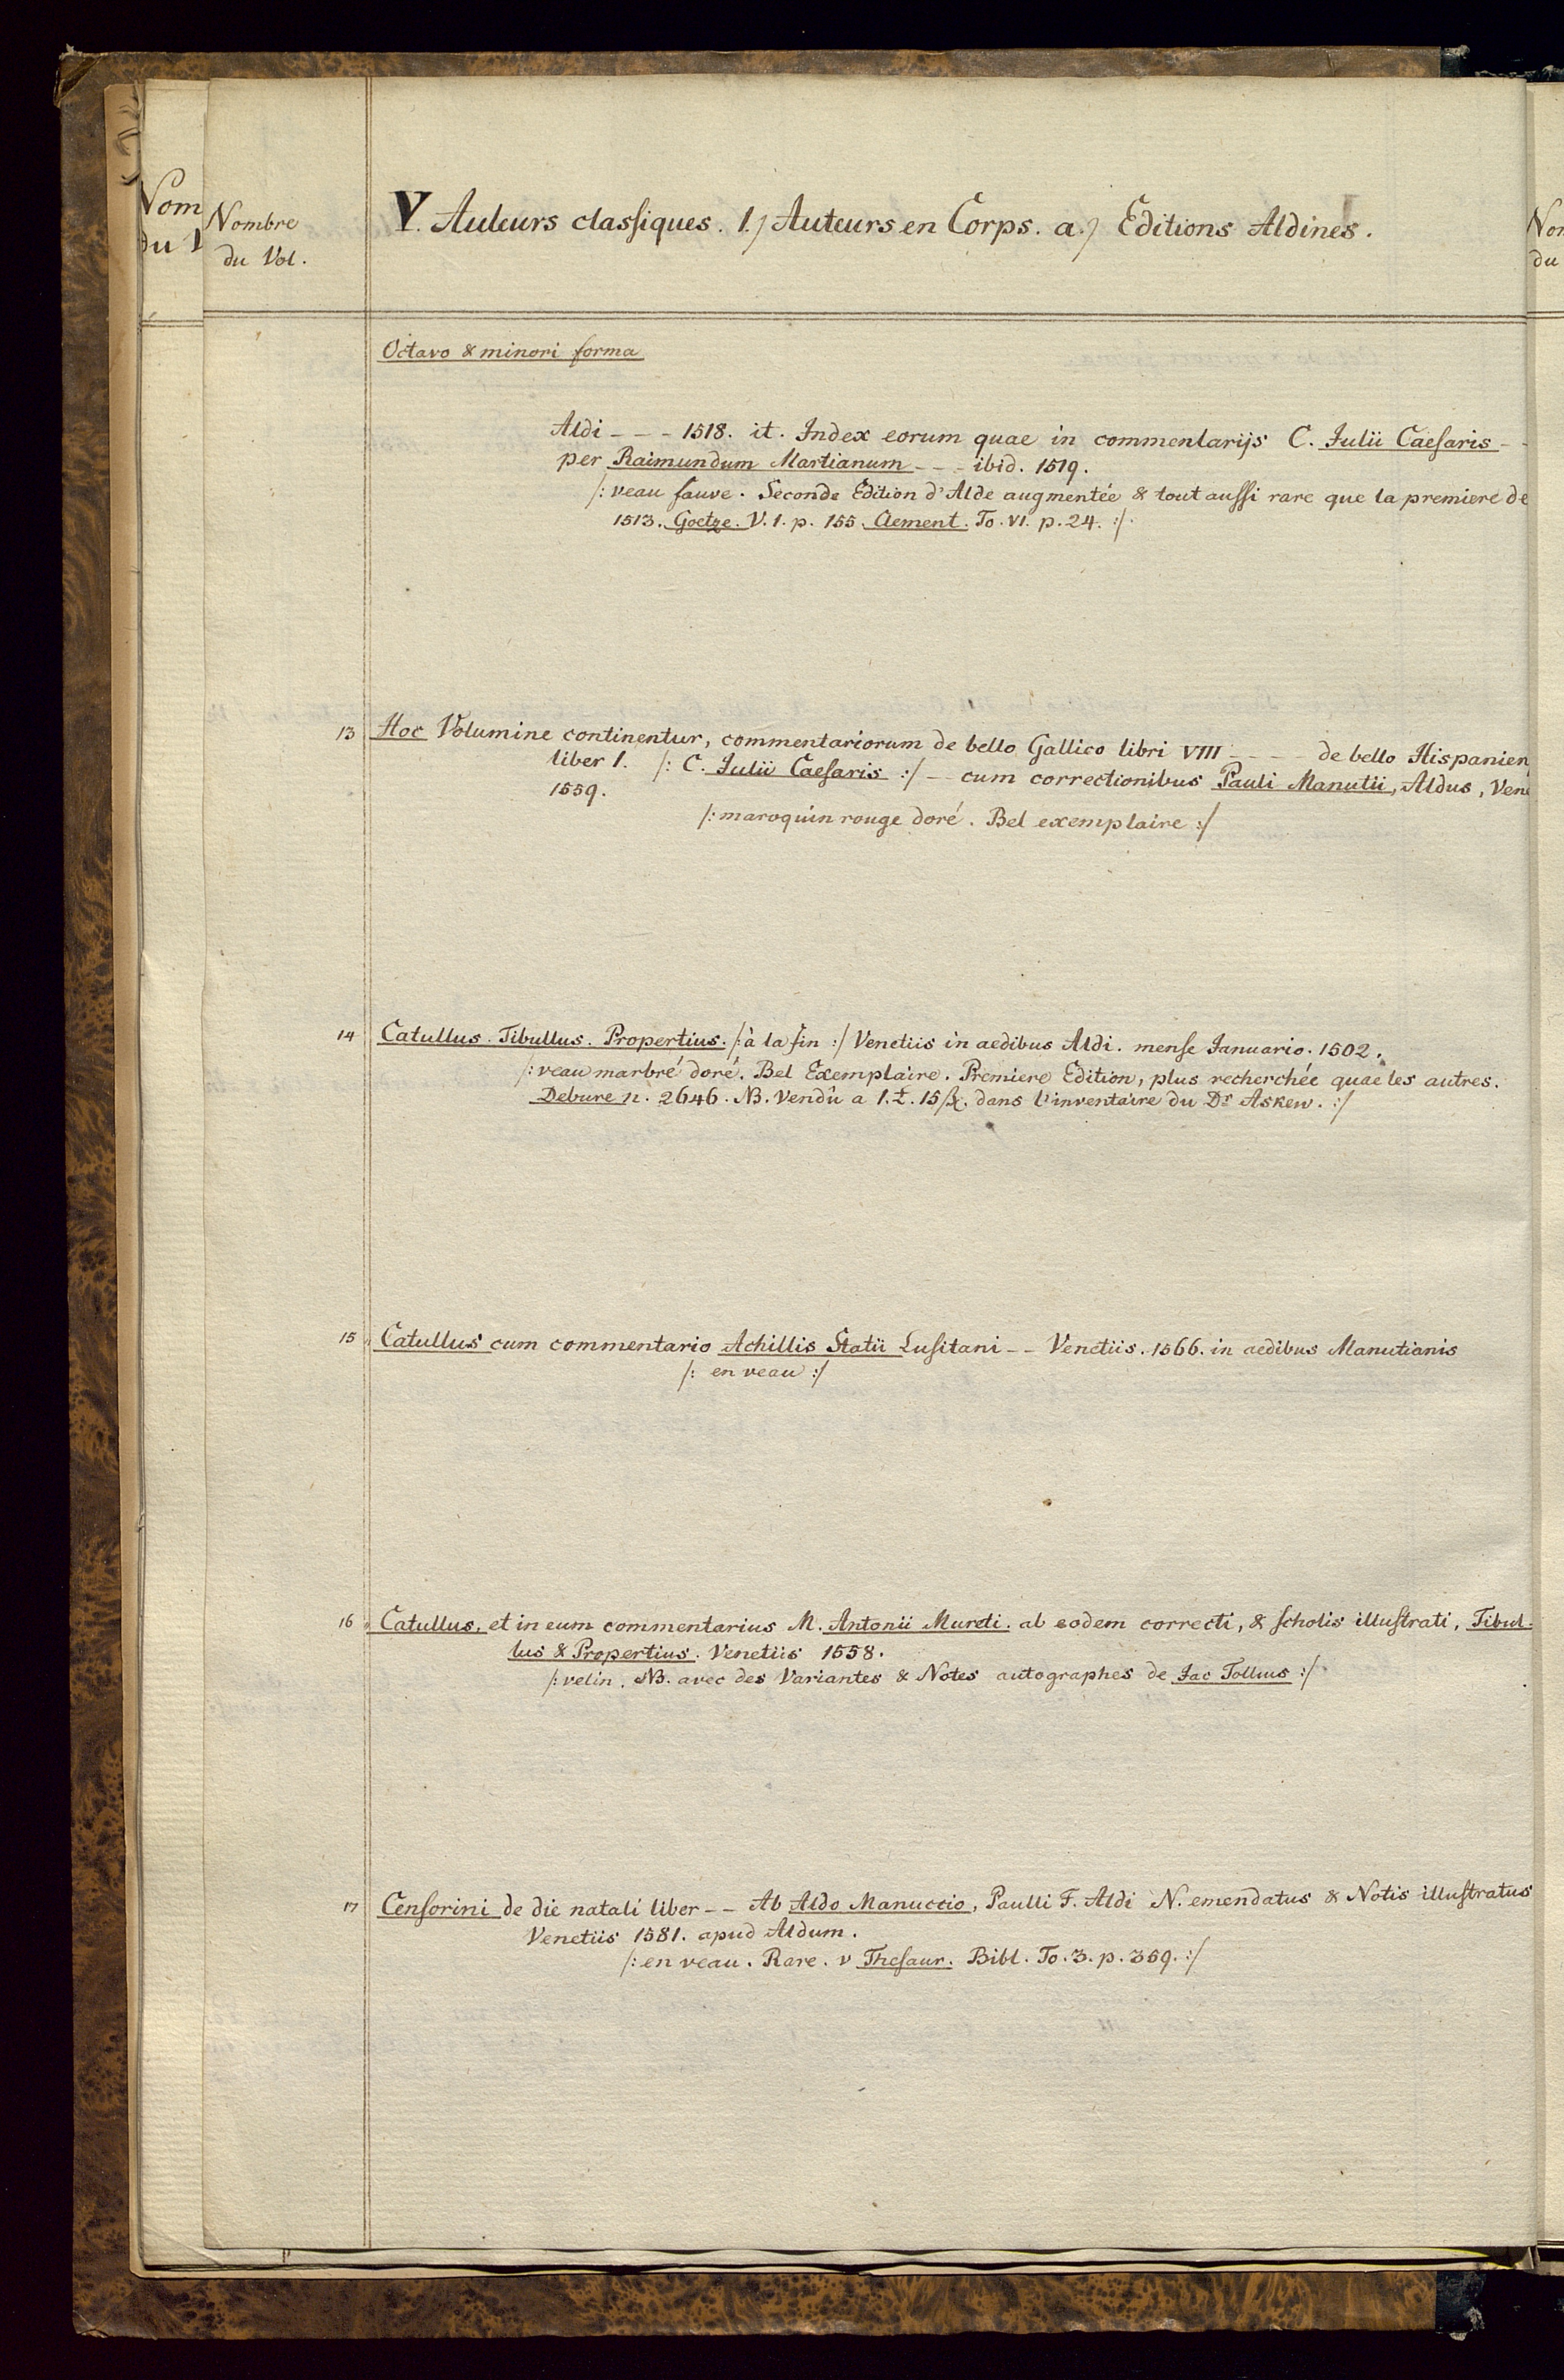 Nom
du V
Nombre
du Vol.
V. Auteurs classiques. 1.) Auteurs en Corps. a.) Editions Aldines.
Nom
du
Octavo & minori forma
Aldi - - - 1518. it. Index eorum quae in commentarijs C. Iulii Caesaris - -
per Raimundum Martianum - - - ibid. 1519.
/: veau fauve. Seconde Edition d'Alde augmentée & tout aussi rare que la premiere de
1513. Goetze. V. 1. p. 155. Clement. To. VI. p. 24. :/
13 Hoc Volumine continentur, commentariorum de bello Gallico libri VIII - - - - de bello Hispanien
liber 1. /: C. Iulii Caesaris :/ - - cum correctionibus Pauli Manutii, Aldus, Vene
1559.
/: maroquin rouge doré. Bel exemplaire :/
14 Catullus. Tibullus. Propertius. /: à la fin :/ Venetiis in aedibus Aldi. mense Ianuario. 1502.
/: veau marbré doré. Bel Exemplaire. Premiere Edition, plus recherchée quae les autres.
Debure n. 2646. NB. Vendû a 1. £. 15 dans l'inventaire du Dr Askew. :/
15 Catullus cum commentario Achillis Statii Lusitani - - Venetiis. 1566. in aedibus Manutianis
/: en veau :/
16 Catullus, et in eum commentarius M. Antonii Mureti. ab eodem correcti, & scholis illustrati, Tibul-
lus & Propertius. Venetiis 1558.
/: velin. NB. avec des Variantes & Notes autographes de Jac Tollius :/
17 Censorini de die natali liber - - Ab Aldo Manuccio, Paulli F. Aldi N. emendatus & Notis illustratus
Venetiis 1581. apud Aldum.
/: en veau. Rare. v Thesaur. Bibl. To. 3. p. 369. :/